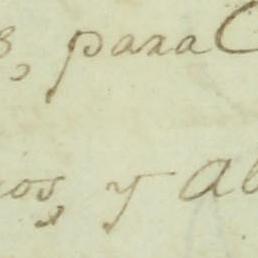 s, para C
ios, y Al